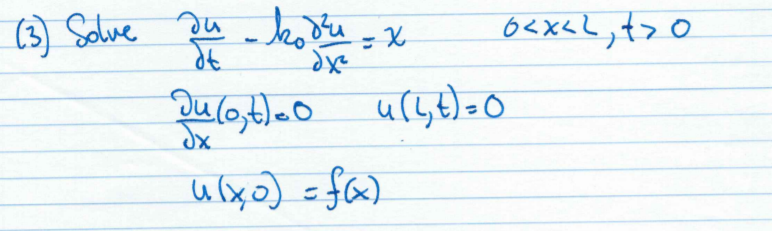 (3) Solve ∂u/∂t - k₀ ∂²u/∂x² = x 0<x<L, t>0
∂u/∂x (0,t)=0 u(L,t)=0
u(x,0) = f(x)